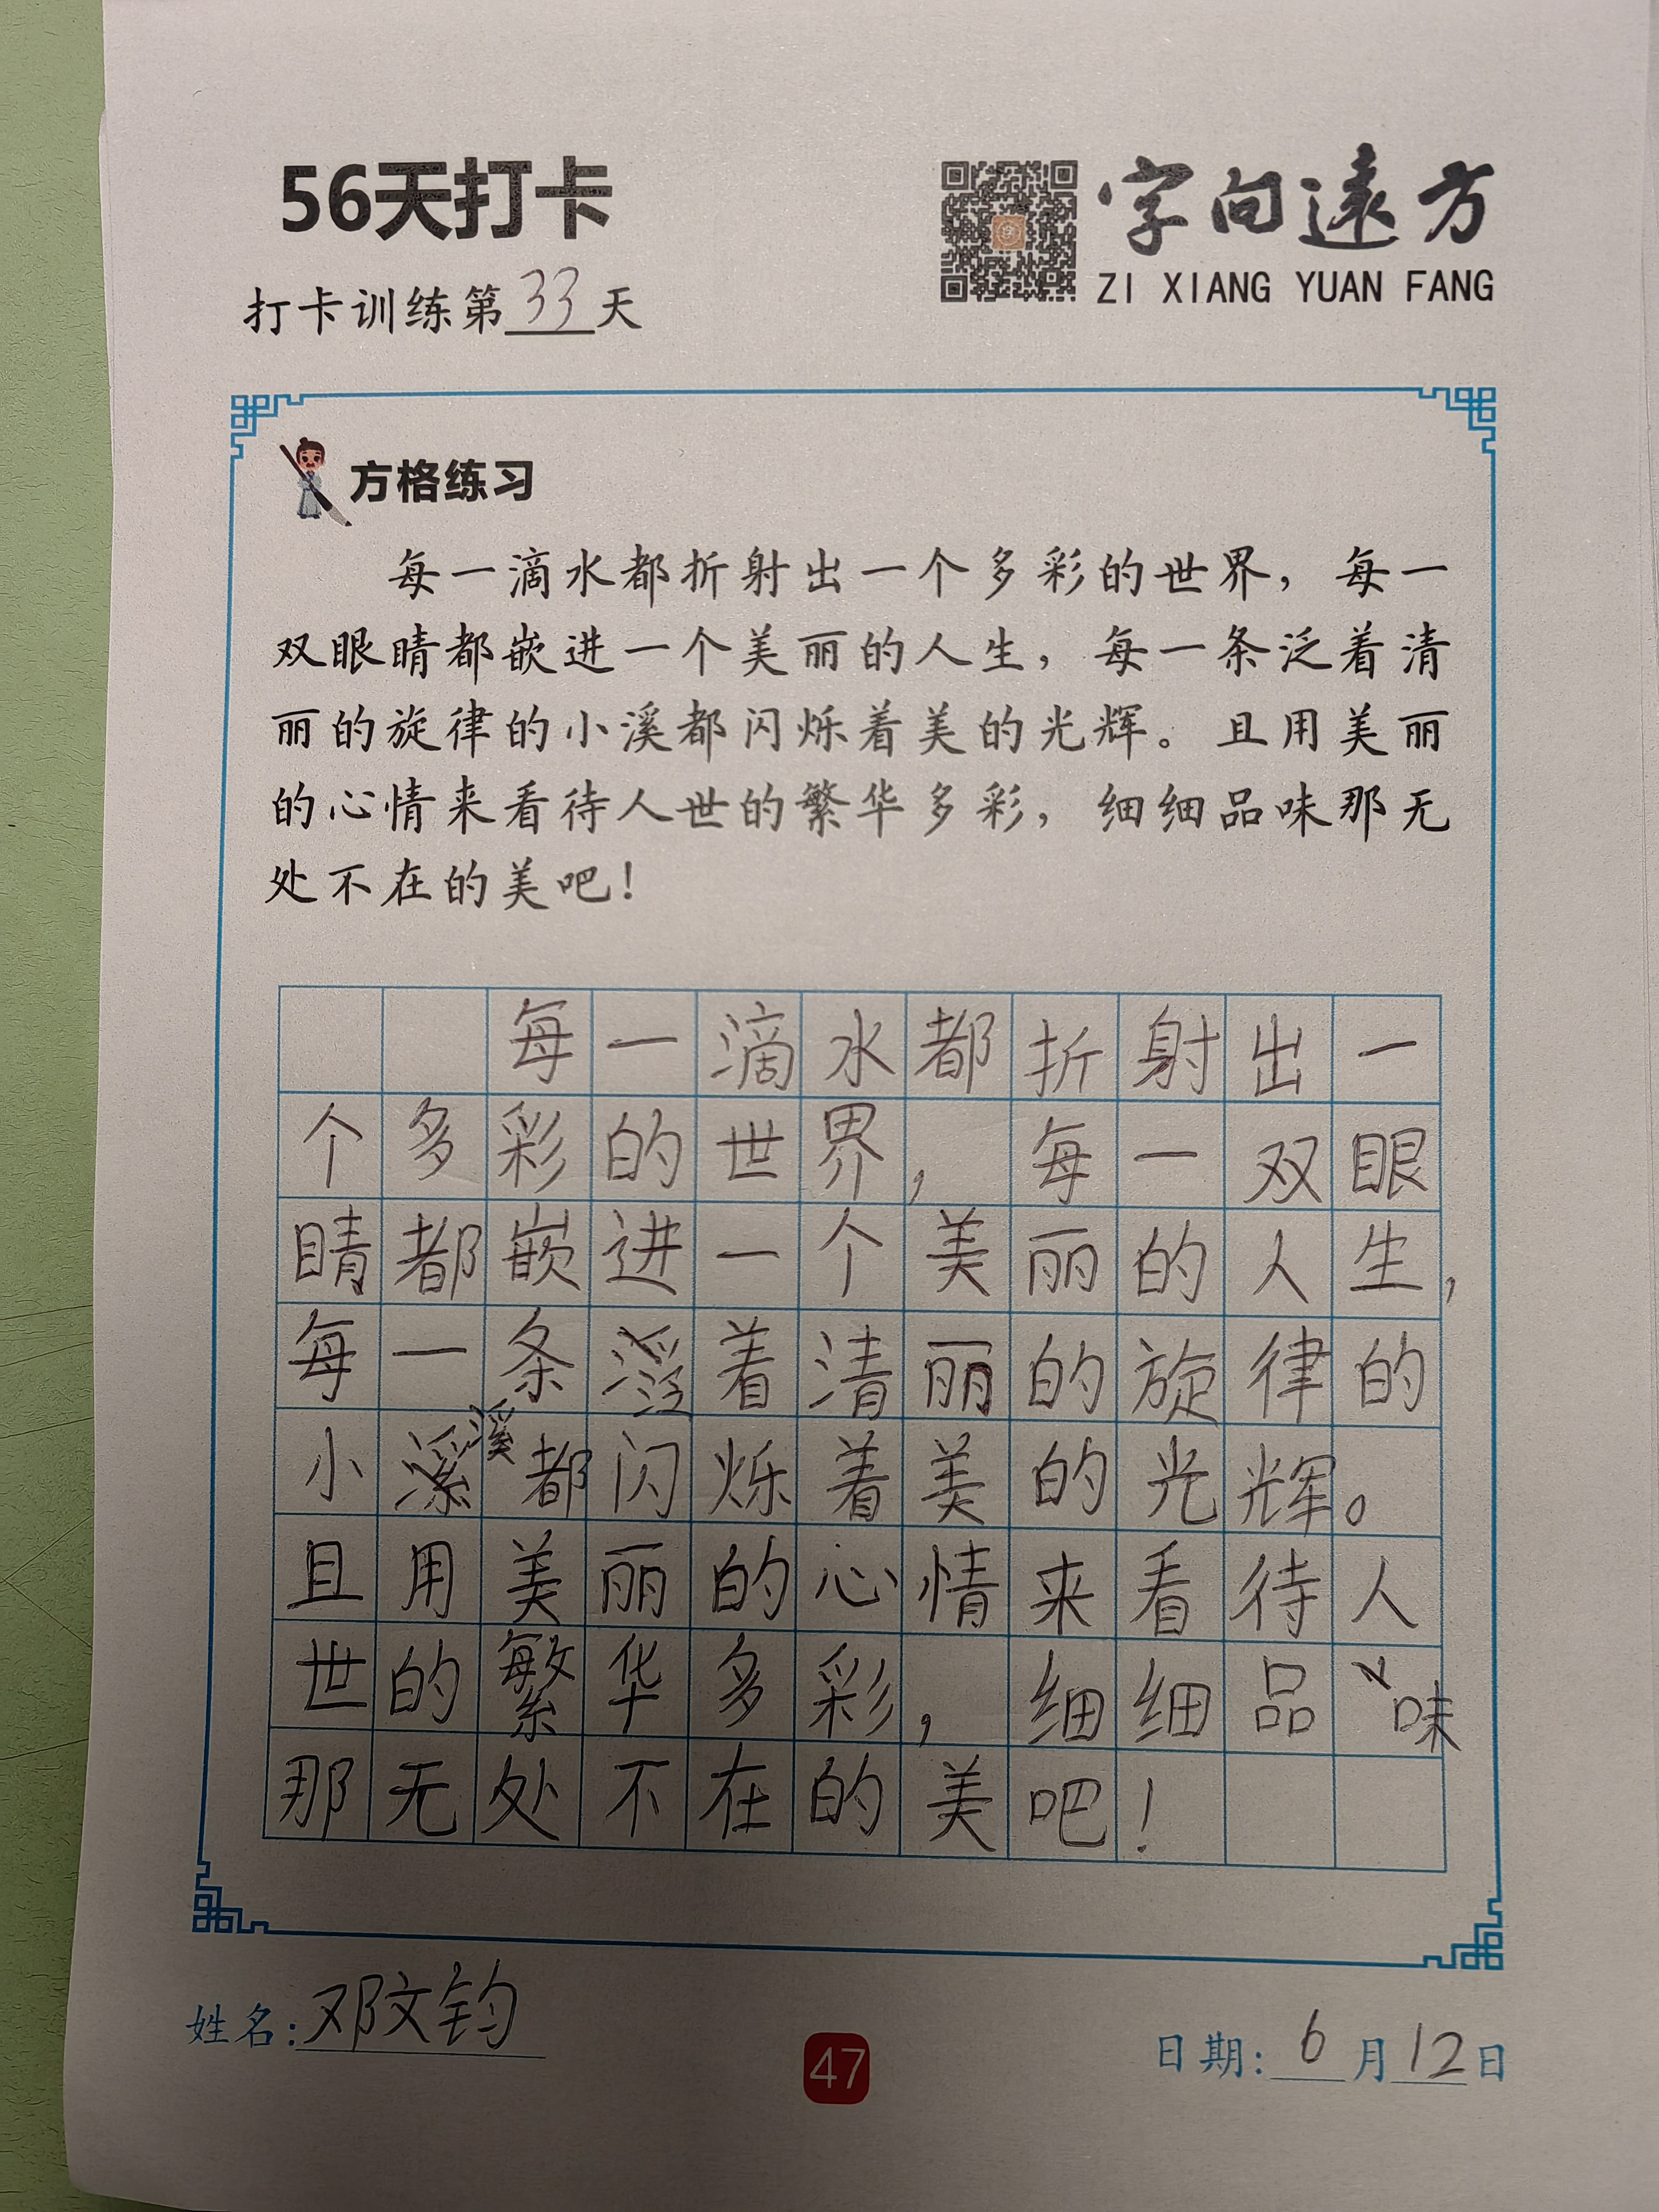 56天打卡
字向遠方
ZI XIANG YUAN FANG
打卡训练第33天
方格练习
每一滴水都折射出一个多彩的世界，每一
双眼睛都嵌进一个美丽的人生，每一条泛着清
丽的旋律的小溪都闪烁着美的光辉。且用美丽
的心情来看待人世的繁华多彩，细细品味那无
处不在的美吧！
每一滴水都折射出一
个多彩的世界，每一双眼
睛都嵌进一个美丽的人生，
每一条泛着清丽的旋律的
小溪都闪烁着美的光辉。
且用美丽的心情来看待人
世的繁华多彩，细细品味
那无处不在的美吧！
姓名：邓文钧
47
日期：6月12日